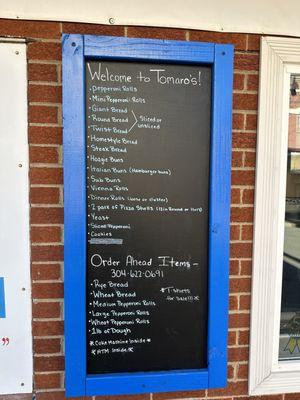 Welcome to Tomaro's!
• pepperoni Rolls
• Mini Pepperoni Rolls
• Giant Bread
• Round Bread
• Twist Bread
Sliced or
unsliced
• Homestyle Bread
• Steak Bread
• Hoagie Buns
• Italian Buns (Hamburger buns)
• Sub Buns
• Vienna Rolls
• Dinner Rolls (loose or cluster)
• 2 pack of Pizza Shells
• Yeast
• Sliced Pepperoni
• Cookies
Order Ahead Items -
304-622-0691
• Rye Bread
• Wheat Bread
• Medium Pepperoni Rolls
• Large Pepperoni Rolls
• Wheat Pepperoni Rolls
• 1 lb of Dough
* T-shirts
for Sale!!! *
* Coke Machine Inside *
* ATM Inside *